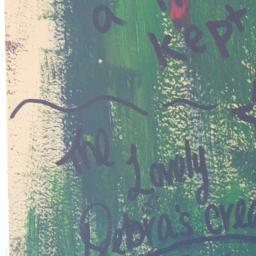 a
kept
The
Lovely
Debra's crea